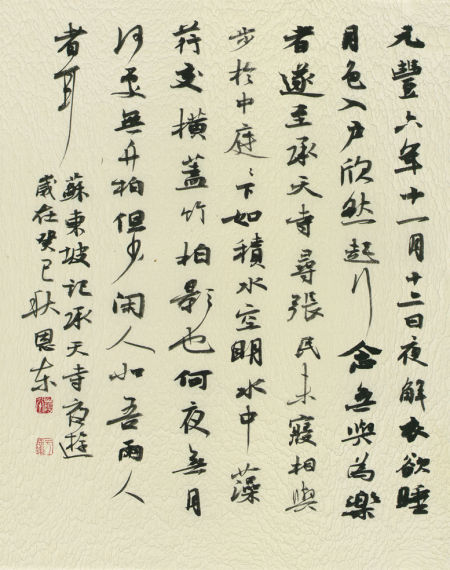 元豐六年十一月十二日夜解衣欲睡
月色入戶欣然起行念無與為樂
者遂至承天寺尋張民未寢相與
步於中庭〻下如積水空明水中藻
荇交橫蓋竹柏影也何夜無月
何處無竹柏但少閑人如吾兩人
者耳
蘇東坡記承天寺夜遊
歲在癸巳秋恩东